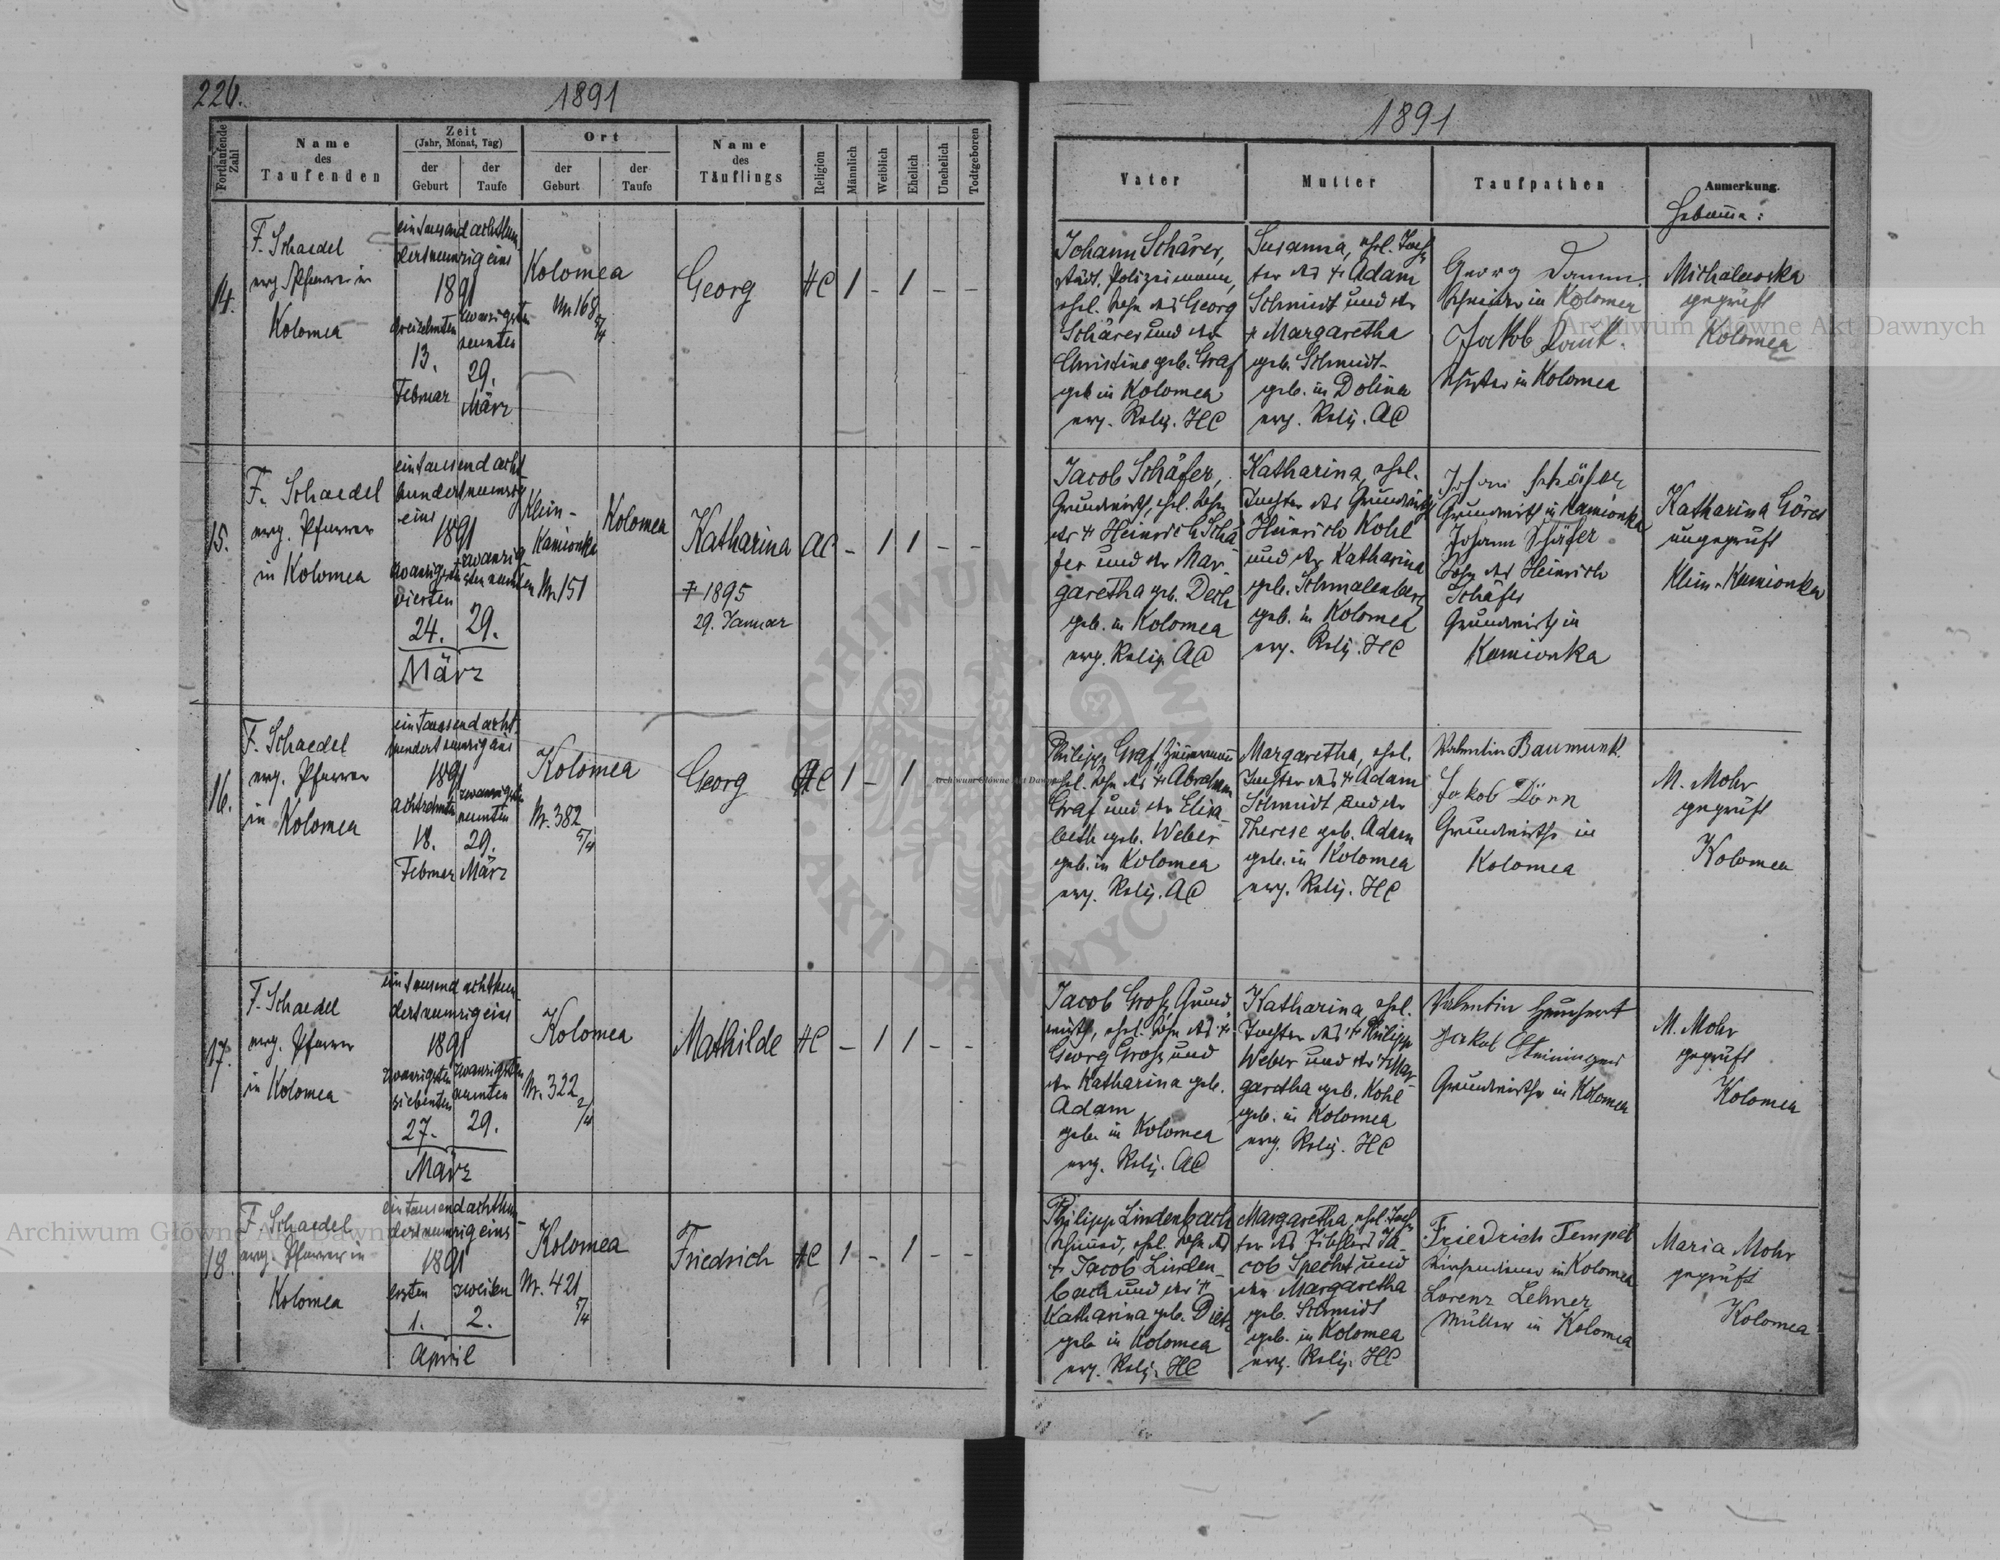 226.
1891
Fortlaufende Zahl
Name des Taufenden
Zeit
(Jahr, Monat, Tag)
der Geburt
der Taufe
Ort
der Geburt
der Taufe
Name des Täuflings
Religion
Männlich
Weiblich
Ehelich
Unehelich
Todtgeboren
14.
F. Schaedel
evg. Pfarrer in
Kolomea
ein tausend achthun-
dertneunzigeins
1891
dreizehnten
13.
Februar
zwanzigsten
neunten
29.
März
Kolomea
Nr. 168
5/4
Georg
HC
1 - 1 - -
15.
F. Schaedel
evg. Pfarrer
in Kolomea
ein tausend acht
hundertneunzig
eins
1891
zwanzigsten
vierten
24.
zwanzig
sten neunten
29.
März
Klein-
Kamionka
Nr. 151
Kolomea
Katharina
† 1895
29. Januar
AC
- 1 1 - -
16.
F. Schaedel
evg. Pfarrer
in Kolomea
ein tausend acht
hundert neunzig eins
1891
achtzehnten
18.
Februar
zwanzigsten
neunten
29.
März
Kolomea
Nr. 382
5/4
Georg
AC
1 - 1
17.
F. Schaedel
evg. Pfarrer
in Kolomea
ein tausend achthun-
dertneunzigeins
1891
zwanzigsten
siebenten
27.
zwanzigsten
neunten
29.
März
Kolomea
Nr. 322
2/4
Mathilde
HC
- 1 1 - -
18.
F. Schaedel
evg. Pfarrer in
Kolomea
ein tausend achthun-
dertneunzigeins
1891
ersten
1.
zweiten
2.
April
Kolomea
Nr. 421
5/4
Friedrich
HC
1 - 1 - -
1891
Vater
Mutter
Taufpathen
Anmerkung.
Hebamme:
Johann Schärer,
städt. Polizeimann,
ehl. Sohn des Georg
Schärer und der
Christine geb. Graf
geb. in Kolomea
evg. Relig. HC
Susanna, ehl. Toch-
ter des † Adam
Schmidt und der
† Margaretha
geb. Schmidt
geb. in Dolina
evg. Relig. AC
Georg Damm
Schneider in Kolomea
Jakob
in Kolomea
Michalewska
geprüft
Kolomea
Jacob Schäfer,
Grundwirth, ehl. Sohn
des † Heinrich Schä-
fer und der Mar-
garetha geb.
geb. in Kolomea
evg. Relig. AC
Katharina, ehl.
Tochter des Grundwirths
Heinrich Kohl
und der Katharina
geb. Schmalenberg
geb. in Kolomea
evg. Relig. HC
Johann Schäfer
Grundwirth in Kamionka
Johann Schäfer
Sohn des Heinrich
Schäfer
Grundwirth in
Kamionka
Katharina Göres
ungeprüft
Klein-Kamionka
Philipp Graf, Zimmermann
ehl. Sohn des † Abraham
Graf und der Elisa-
beth geb. Weber
geb. in Kolomea
evg. Relig. AC
Margaretha, ehl.
Tochter des † Adam
Schmidt und der
Therese geb. Adam
geb. in Kolomea
evg. Relig. HC
Valentin Baumunk
Jakob Dörn
Grundwirthe in
Kolomea
M. Mohr
geprüft
Kolomea
Jacob Groß, Grund-
wirth, ehl. Sohn des †
Georg Groß und
der Katharina geb.
Adam
geb. in Kolomea
evg. Relig. AC
Katharina, ehl.
Tochter des † Philipp
Weber und der † Mar-
garetha geb. Kohl
geb. in Kolomea
evg. Relig. HC
Valentin
Jakob Steininger
Grundwirthe in Kolomea
M. Mohr
geprüft
Kolomea
Philipp Lindenbach
Schmied, ehl. Sohn des
† Jacob Linden-
bach und der †
Katharina geb. Dietz
geb. in Kolomea
evg. Relig. HC
Margaretha, ehl. Toch-
ter des Ja-
cob Specht und
der Margaretha
geb. Schmidt
geb. in Kolomea
evg. Relig. HC
Friedrich Tempel
Kirchendiener in Kolomea
Lorenz Lehner
Müller in Kolomea
Maria Mohr
geprüft
Kolomea
Archiwum Główne Akt Dawnych
Archiwum Główne Akt Dawnych
Archiwum Główne Akt Dawnych